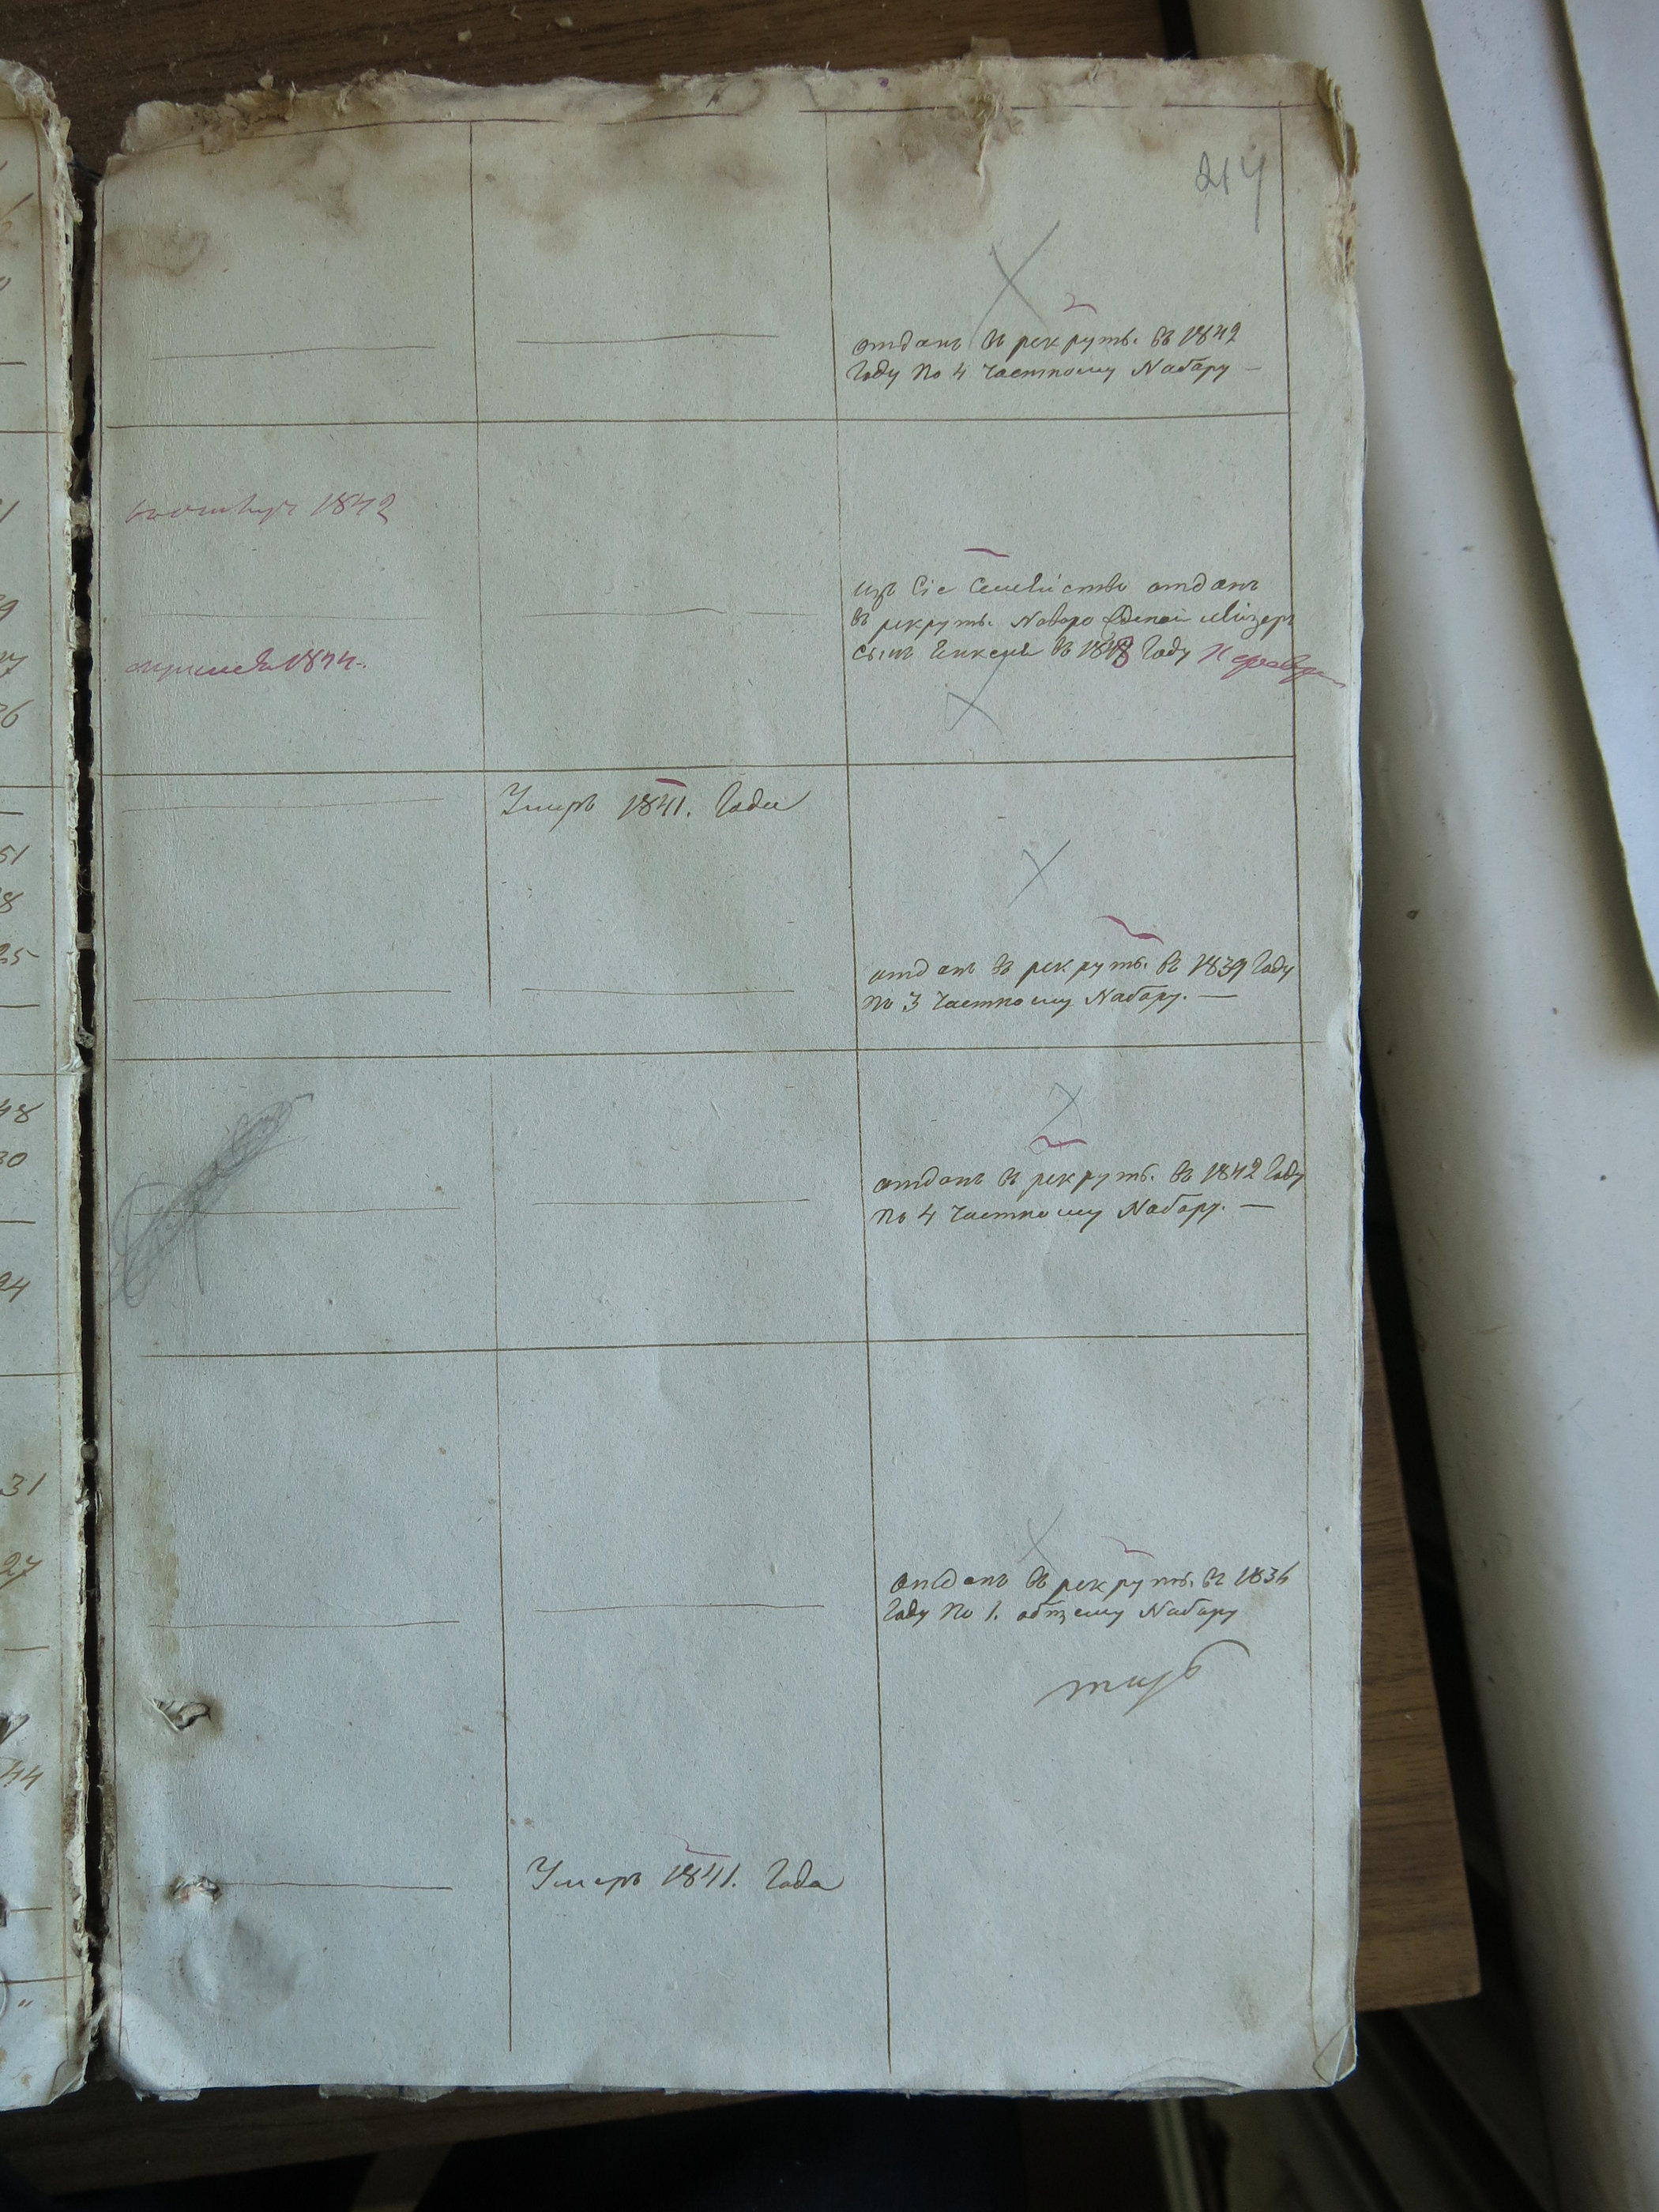 214
отданъ въ рекруты. въ 1842
году по 4 частному Набору —
1842
изъ сіе семейство отданъ
въ рекруты.
1844.
сынъ въ году
Умеръ 1841. года
отданъ въ рекруты. въ 1839 году
по 3 частному Набору. —
отданъ въ рекруты. въ 1842 году
по 4 частному Набору. —
отданъ въ рекруты. въ 1836
году по 1. общему Набору
Умеръ 1841. года
1
9
7
26
51
8
25
48
30
94
31
27
44
"